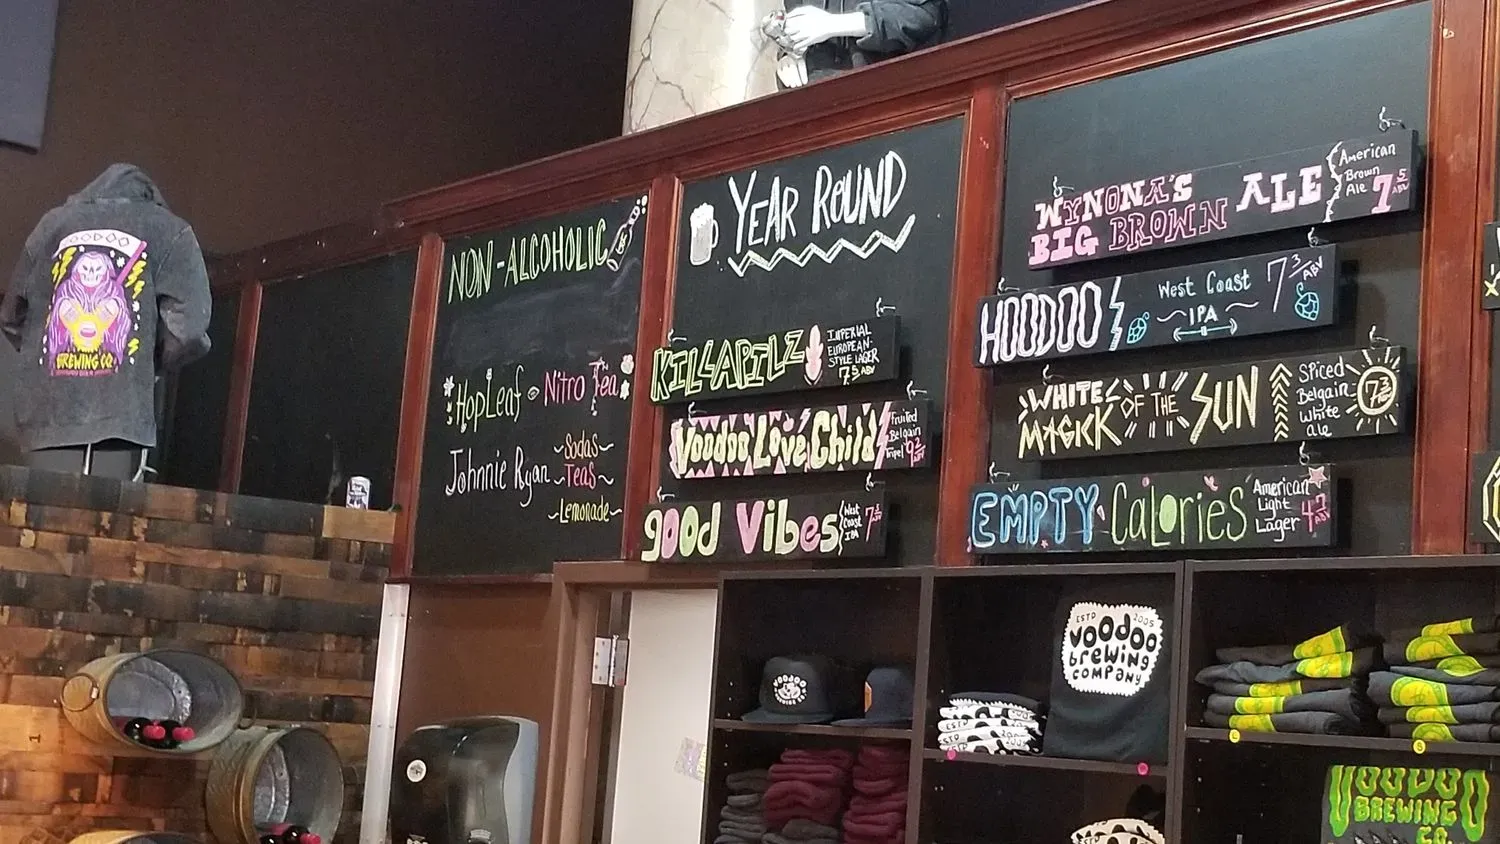 VOODOO
BREWING CO.
NON-ALCOHOLIC
HopLeaf Nitro Tea
Johnnie Ryan
~Sodas~
~Teas~
~Lemonade~
YEAR ROUND
KILLAPILZ
IMPERIAL
EUROPEAN-
STYLE LAGER
7.5 ABV
Voodoo Love Child
Fruited
Belgain
Tripel 9.2 ABV
good Vibes
West
Coast
IPA
7.3 ABV
WYNONA'S
BIG BROWN ALE
American
Brown
Ale 7.5 ABV
HOODOO
West Coast
~IPA~
7.3 ABV
WHITE
MAGICK OF THE SUN
Spiced
Belgain
White
ale
7.3
EMPTY CAlories
American
Light
Lager
4.7 ABV
VOODOO
BREWING CO.
ESTD 2005
VOODOO
brewing
COMPANY
ESTD
2005
L
S
VOODOO
BREWING
CO.